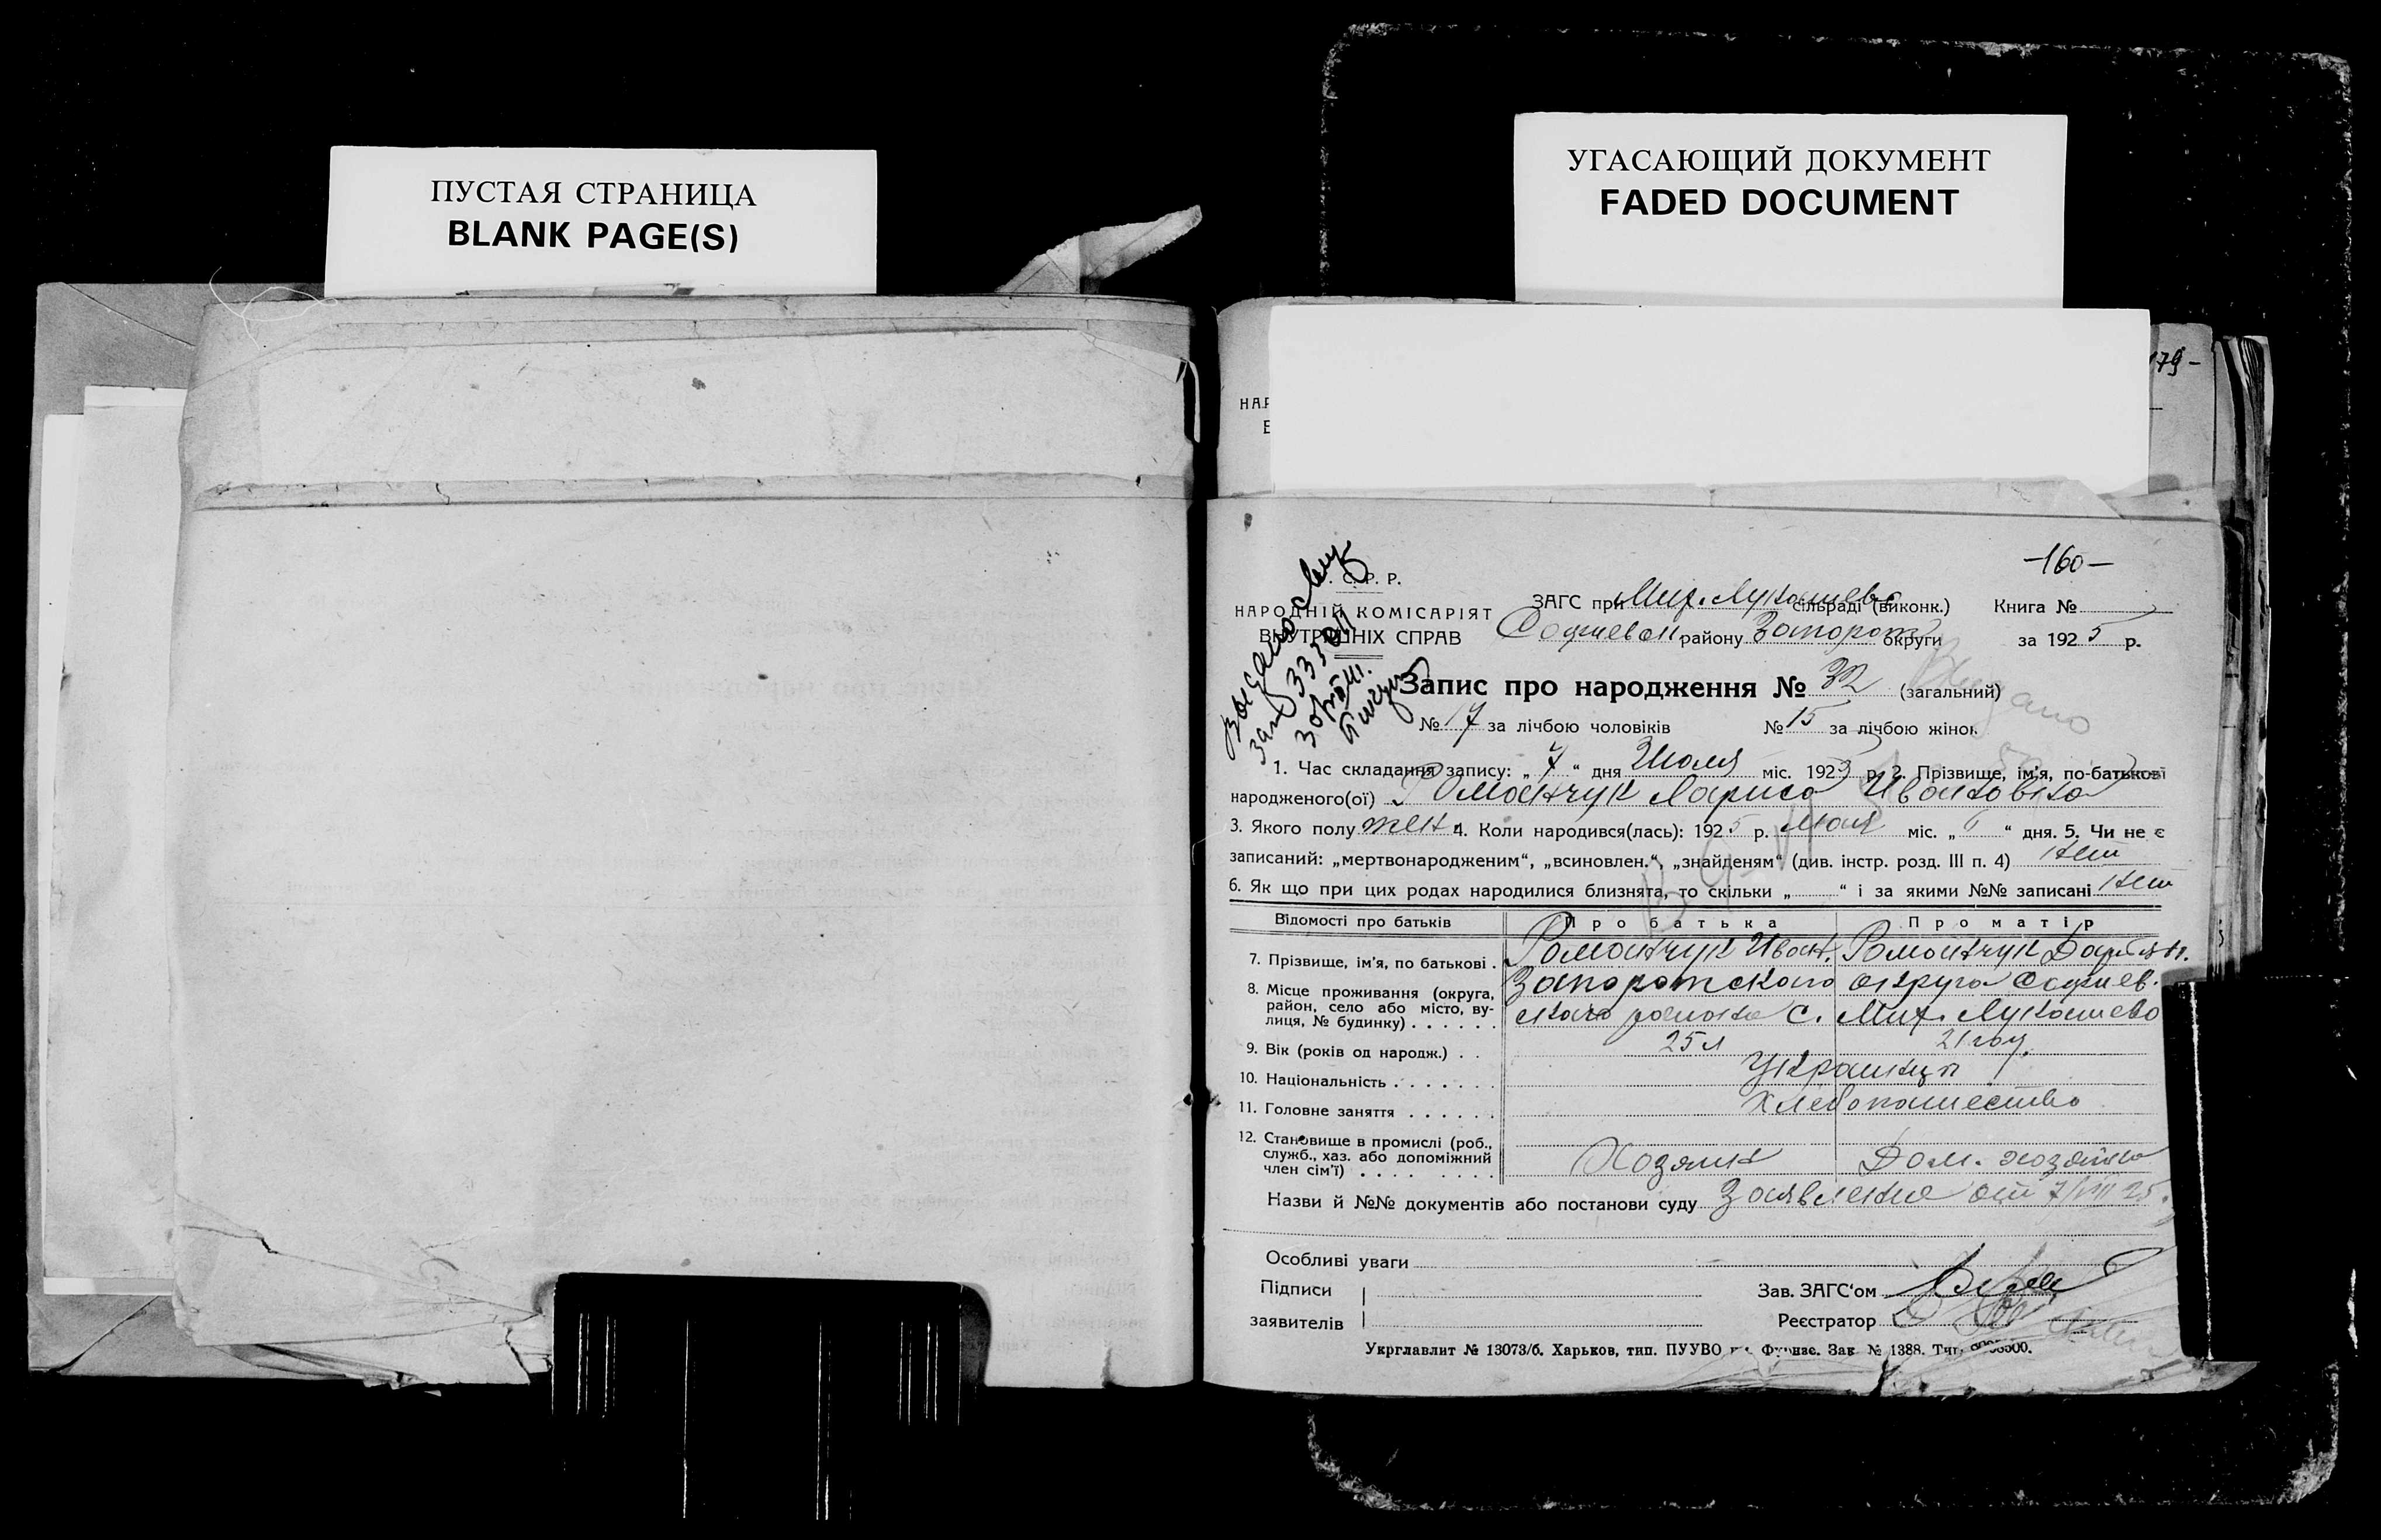 ПУСТАЯ СТРАНИЦА
BLANK PAGE(S)
УГАСАЮЩИЙ ДОКУМЕНТ
FADED DOCUMENT
179-
НАР
-160-
С. Р. Р.
НАРОДНІЙ КОМІСАРІЯТ
ВНУТРІШНІХ СПРАВ
ЗАГС при Мих. Лукашево сільраді (виконк.) Книга №
Софиевск району Запорож округи за 1925 р.
Запис про народження № 32 (загальний)
№ 17 за лічбою чоловіків № 15 за лічбою жінок
Видано
1. Час складання запису: „ 7 “ дня Июля міс. 1925 р. 2. Прізвище, ім'я, по-батькові
народженого(ої) Романчук Лариса Ивановна
3. Якого полу жен. 4. Коли народився(лась): 1925 р. міс. „ “ дня. 5. Чи не є
записаний: „мертвонародженим“, „всиновлен.“, „знайденям“ (див. інстр. розд. III п. 4) нет
6. Як що при цих родах народилися близнята, то скільки „ “ і за якими №№ записані нет
Відомості про батьків Про батька Про матір
7. Прізвище, ім'я, по батькові . Романчук Иван. Романчук Дарья
8. Місце проживання (округа, район, село або місто, вулиця, № будинку) . . . . . . Запорожского округа Софиев.
ского района с. Мих. Лукашево
9. Вік (років од народж.) . . 25 л 21 год.
10. Національність . . . . . . . Украинцы
11. Головне заняття . . . . . . Хлебопашество
12. Становище в промислі (роб.,
служб., хаз. або допоміжний
член сім'ї) . . . . Хозяин Дом. хозяйка
Назви й №№ документів або постанови суду Заявление от 7/VII 25.
Особливі уваги
Підписи
заявителів
Зав. ЗАГС'ом
Реєстратор
Укрглавлит № 13073/б. Харьков, тип. ПУУВО Зак № 1388.